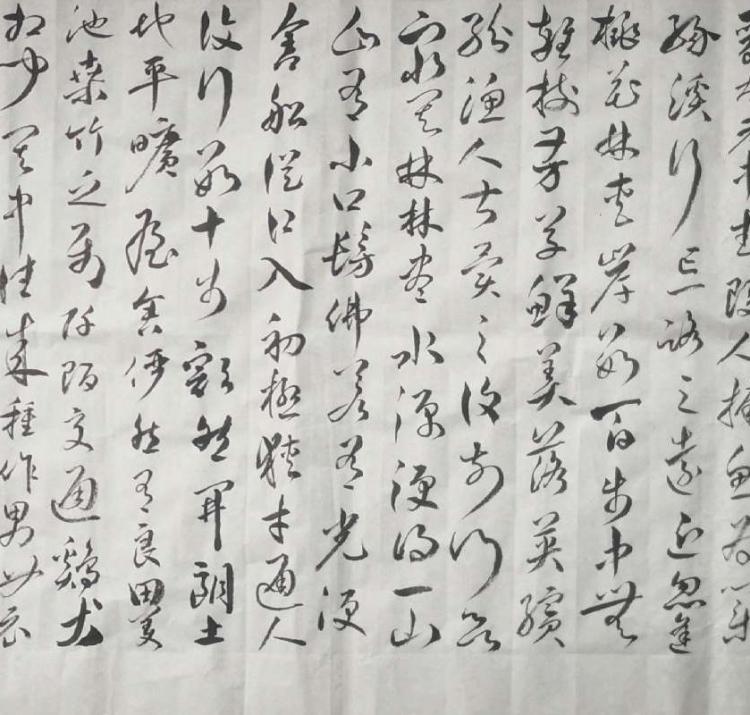 晉太元中武陵人捕魚為業
緣溪行忘路之遠近忽逢
桃花林夾岸數百步中無
雜樹芳草鮮美落英繽
紛漁人甚異之復前行欲
窮其林林盡水源便得一山
山有小口髣佛若有光便
舍船從口入初極狹才通人
復行數十步豁然開朗土
地平曠屋舍儼然有良田美
池桑竹之屬阡陌交通鷄犬
相聞其中往來種作男女衣